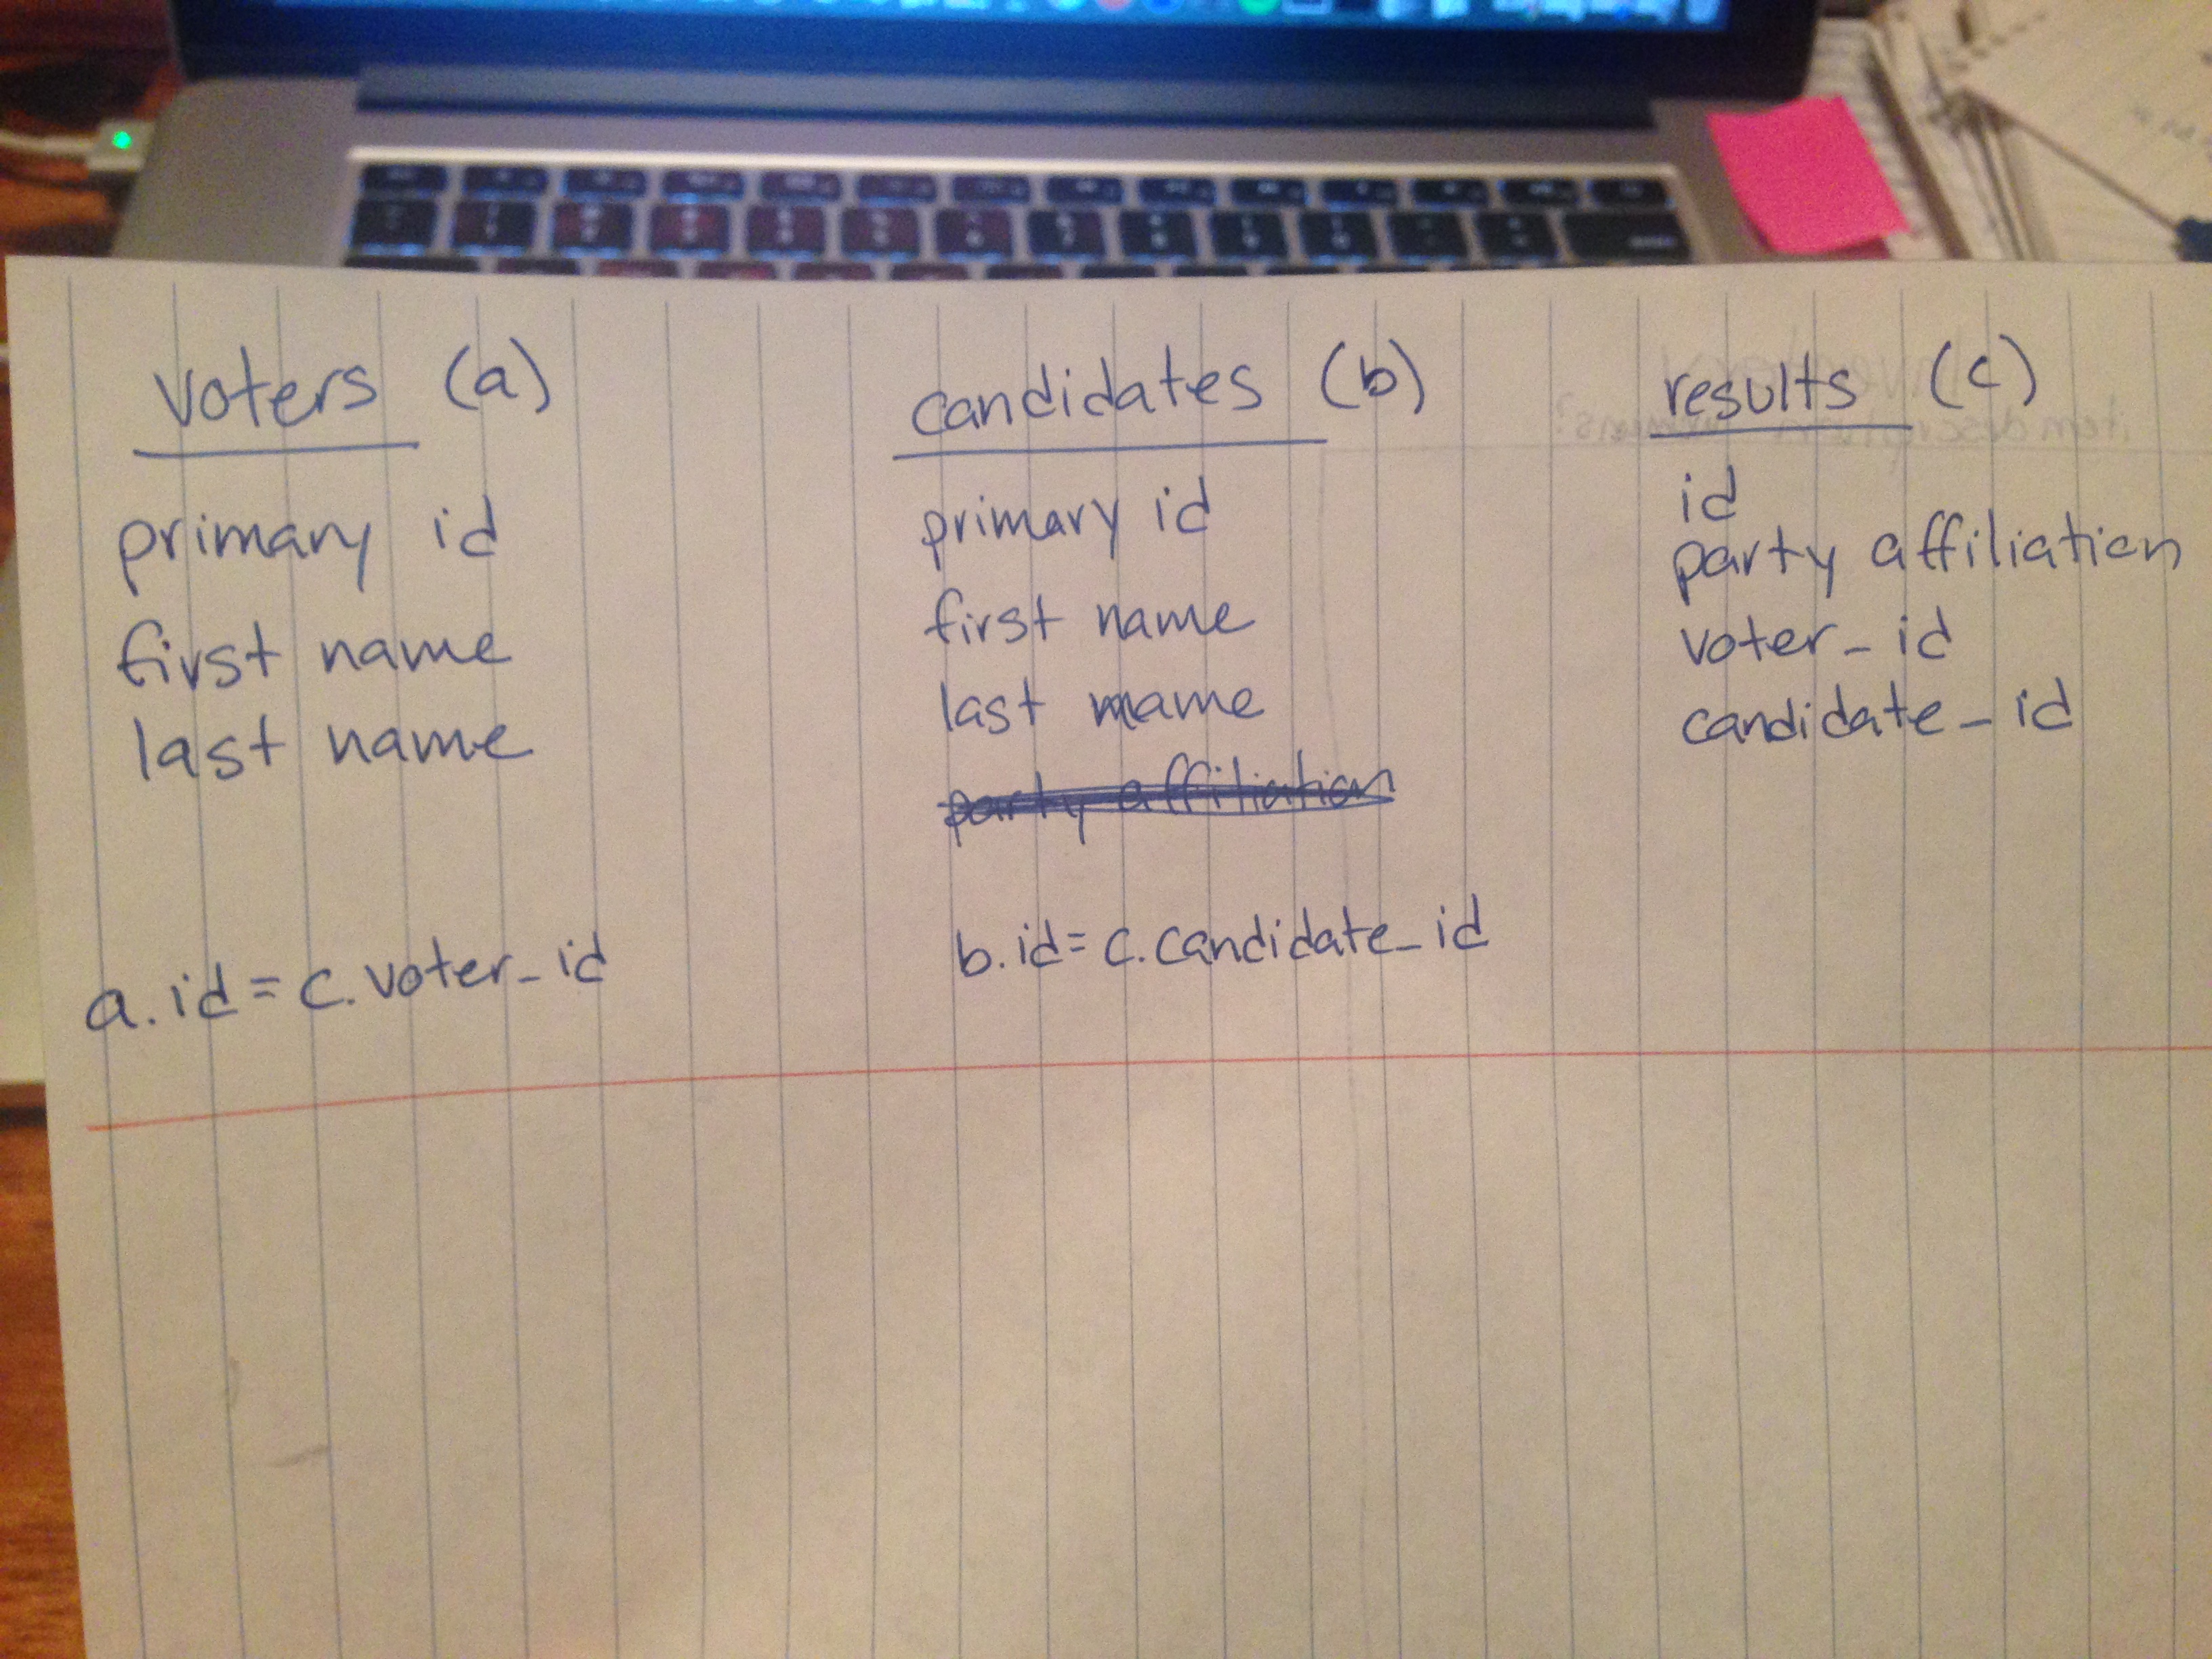 voters (a)
primary id
first name
last name
a.id = c.voter_id
candidates (b)
primary id
first name
last name
party affiliation
b.id = c.candidate_id
results (c)
id
party affiliation
voter_id
candidate_id
item description